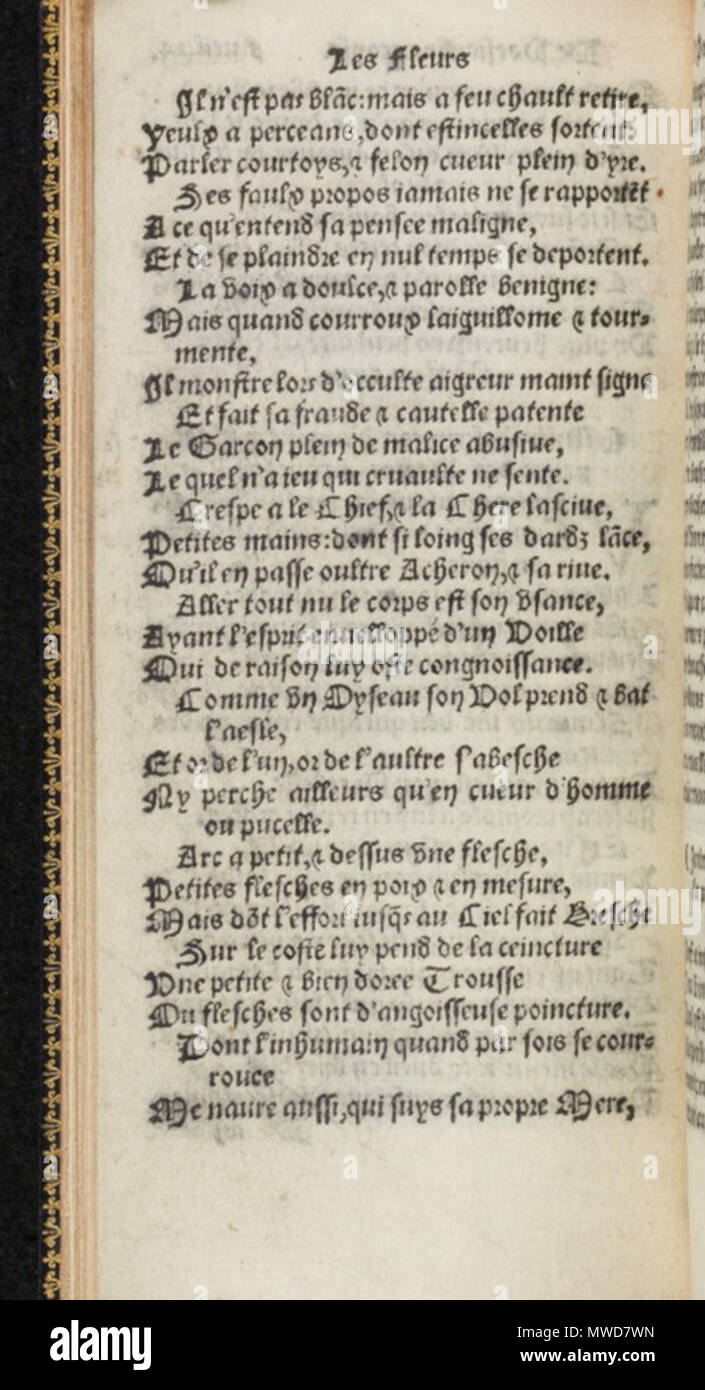 Les Fleurs
Il n'est pas blãc: mais a feu chault retire,
Yeulx a perceans, dont estincelles sortent:
Parler courtoys, & felon cueur plein d'yre.
Ses faulx propos iamais ne se rapportẽt
A ce qu'entend sa pensee maligne,
Et de se plaindre en nul temps se deportent.
La voix a doulce, & parolle benigne:
Mais quand courroux laiguillonne & tour-
mente,
Il monstre lors d'occulte aigreur maint signe
Et fait sa fraude & cautelle patente
Le Garcon plein de malice abusiue,
Le quel n'a ieu qui cruaulte ne sente.
Crespe a le Chief, & la Chere lasciue,
Petites mains: dont si loing ses dardz lãce,
Qu'il en passe oultre Acheron, & sa riue.
Aller tout nu le corps est son vsance,
Ayant l'esprit enuelloppé d'un Voille
Qui de raison luy oste congnoissance.
Comme vn Oyseau son Vol prend & bat
l'aesle,
Et or de l'un, or de l'aultre s'abesche
Ny perche ailleurs qu'en cueur d'homme
ou pucelle.
Arc a petit, & dessus vne flesche,
Petites flesches en poix & en mesure,
Mais dõt l'effort iusq̃s au Ciel fait Bresche
Sur le coste luy pend de la ceincture
Vne petite & bien doree Trousse
Ou flesches sont d'angoisseuse poincture.
Dont l'inhumain quand par fois se cour-
rouce
Me naure aussi, qui suys sa propre Mere,
alamy
Image ID: MWD7WN
www.alamy.com